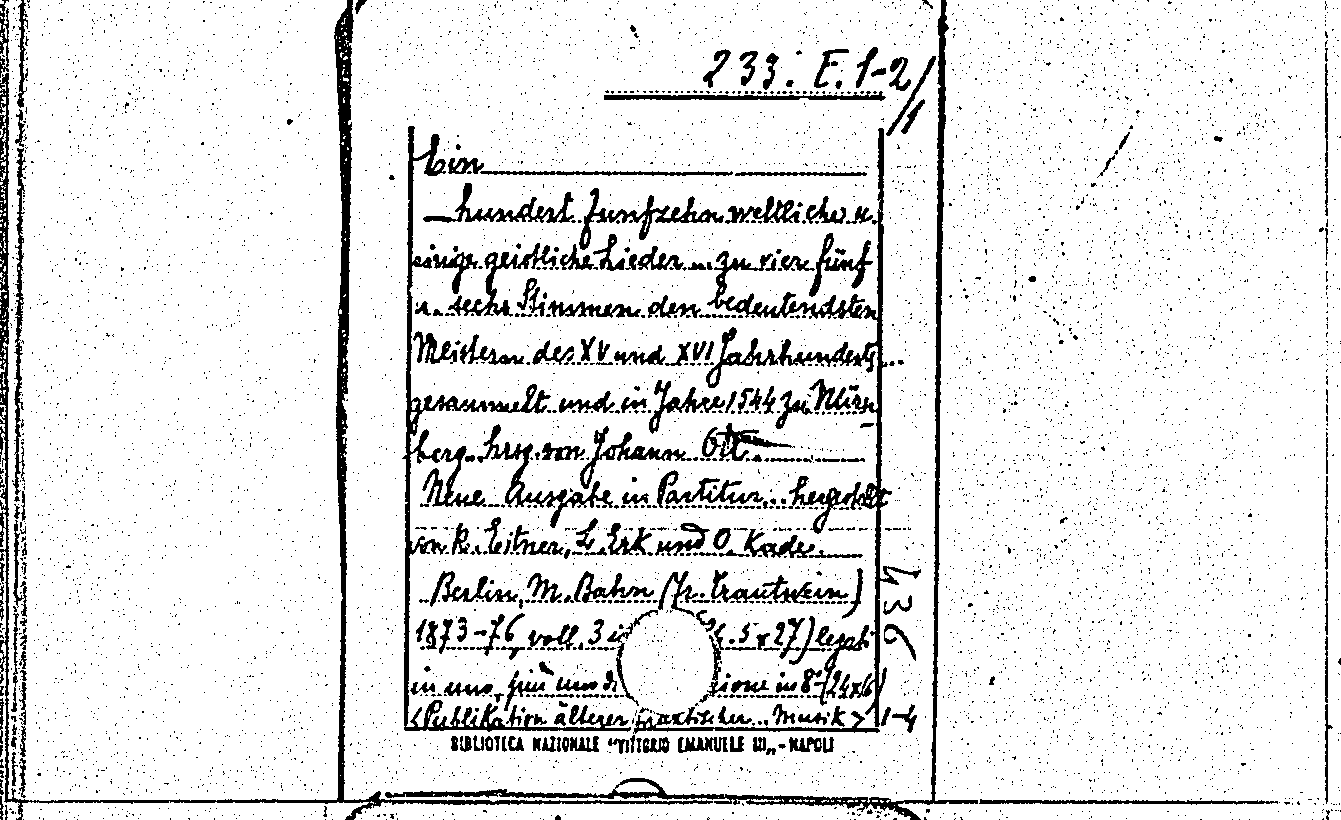 233. E. 1-2/1
Ein
hundert funfzehn weltliche u.
einige geistliche Lieder ... zu vier fünf
u. sechs Stimmen den bedeutendsten
Meistern des XV und XVI Jahrhunderts...
gesammelt und in Jahre 1544 zu Nürn
berg. hrsg. von Johann Ott.
Neue Ausgabe in Partitur... hergestellt
von R. Eitner, L. Erk und O. Kade.
Berlin, M. Bahn (fr. Trautwein)
1873-76, voll. 3 5 x 27) legati
in uno, più uno di sione in 8º (24x16)
<Publikation älterer praktischer.. Musik> 1-4
436
BIBLIOTECA NAZIONALE "VITTORIO EMANUELE III„ - NAPOLI